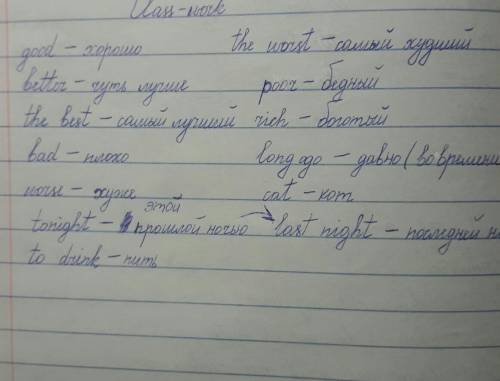 Class-work
good – хорошо the worst – самый худший
better – чуть лучше poor – бедный
the best – самый лучший rich – боготый
bad – плохо long ago – давно (во времени
worse – хуже cat – кот
этой
tonight – прошлой ночью last night – последней
to drink – пить